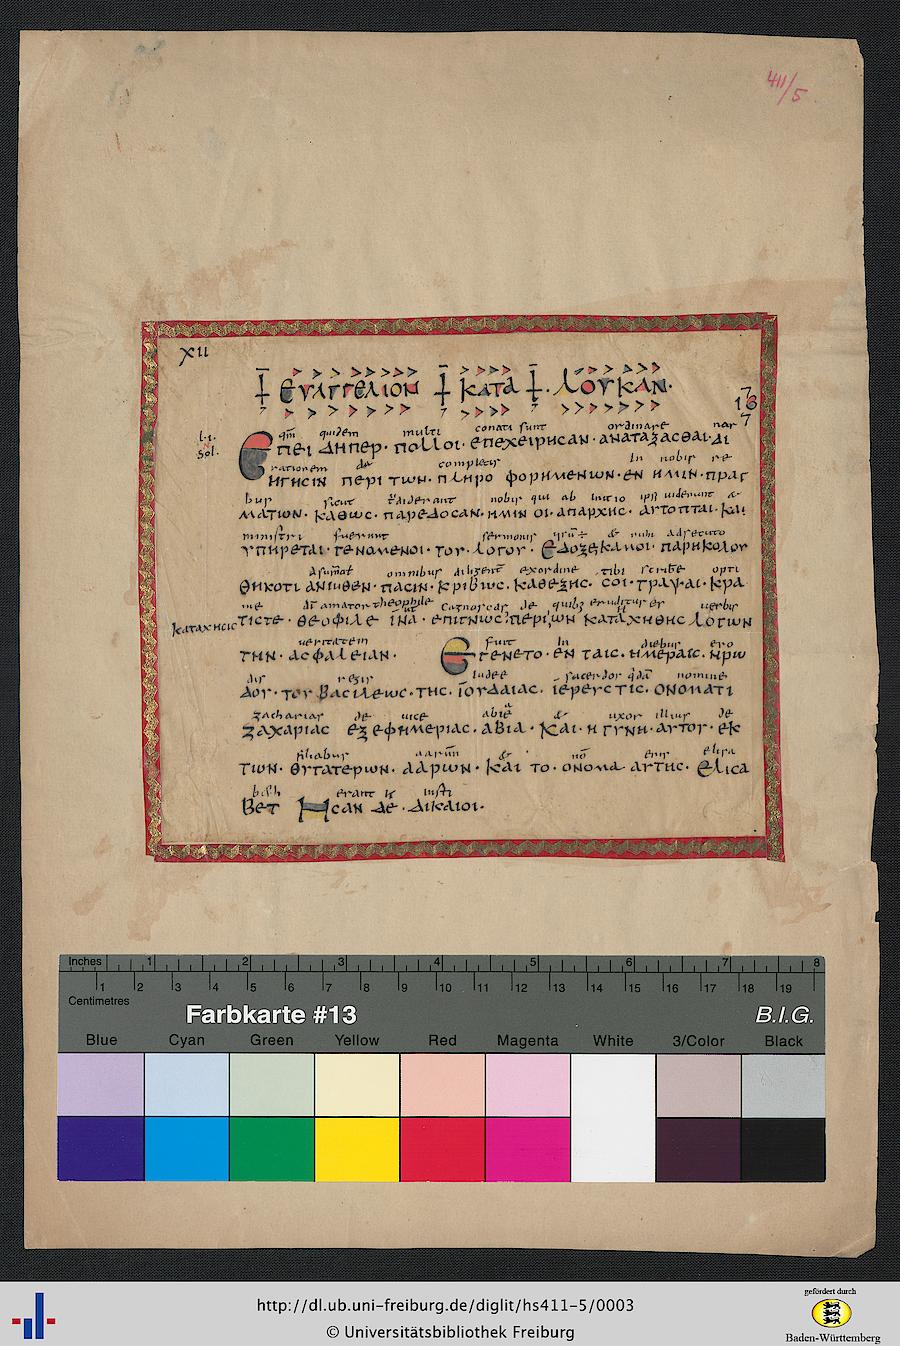 411/5
XII
ΕΥΑΓΓΕΛΙΟΝ ΚΑΤΑ ΛΟΥΚΑΝ·
quidem multi conati sunt ordinare nar
ΕΠΕΙ ΔΗΠΕΡ· ΠΟΛΛΟΙ· ΕΠΕΧΕΙΡΗCΑΝ· ΑΝΑΤΑΞΑCΘΑΙ· ΔΙ
rationem de in nobis re
ΗΓΗCΙΝ ΠΕΡΙ ΤΩΝ· ΠΛΗΡΟ ΦΟΡΗΜΕΝΩΝ· ΕΝ ΗΜΙΝ· ΠΡΑΓ
bus sicut nobis qui ab initio
ΜΑΤΩΝ· ΚΑΘΩC· ΠΑΡΕΔΟCΑΝ· ΗΜΙΝ ΟΙ· ΑΠΑΡΧΗC· ΑΥΤΟΠΤΑΙ· ΚΑΙ
ministri fuerunt sermonis
ΥΠΗΡΕΤΑΙ· ΓΕΝΟΜΕΝΟΙ· ΤΟΥ· ΛΟΓΟΥ· ΕΔΟΞΕΚΑΜΟΙ· ΠΑΡΗΚΟΛΟΥ
omnibus tibi opti
ΘΗΚΟΤΙ ΑΝΩΘΕΝ· ΠΑCΙΝ· ΚΡΙΒΩC· ΚΑΘΕΞΗC· CΟΙ· ΓΡΑΨΑΙ· ΚΡΑ
me amator theophile ut cognoscas de verbis
ΚΑΤΑΧΗCΙC ΤΙCΤΕ· ΘΕΟΦΙΛΕ ΙΝΑ· ΕΠΙΓΝΩC ΠΕΡΙ ΩΝ ΚΑΤΑΧΗΘΗC ΛΟΓΩΝ
veritatem fuit in diebus ero
ΤΗΝ· ΑCΦΑΛΕΙΑΝ· ΕΓΕΝΕΤΟ· ΕΝ ΤΑΙC· ΗΜΕΡΑΙC· ΗΡΩ
dis regis iudee sacerdos nomine
ΔΟΥ· ΤΟΥ ΒΑCΙΛΕΩC· ΤΗC· ΙΟΥΔΑΙΑC· ΙΕΡΕΥC ΤΙC· ΟΝΟΜΑΤΙ
zacharias de vice abia & uxor illius de
ΖΑΧΑΡΙΑC ΕΞ ΕΦΗΜΕΡΙΑC· ΑΒΙΑ· ΚΑΙ· Η ΓΥΝΗ· ΑΥΤΟΥ· ΕΚ
filiabus & elisa
ΤΩΝ· ΘΥΓΑΤΕΡΩΝ· ΑΑΡΩΝ· ΚΑΙ ΤΟ· ΟΝΟΜΑ· ΑΥΤΗC· ΕΛΙCΑ
erant iusti
ΒΕΤ ΗCΑΝ ΔΕ· ΔΙΚΑΙΟΙ·
Inches 1 2 3 4 5 6 7 8
1 2 3 4 5 6 7 8 9 10 11 12 13 14 15 16 17 18 19
Centimetres
Farbkarte #13 B.I.G.
Blue Cyan Green Yellow Red Magenta White 3/Color Black
http://dl.ub.uni-freiburg.de/diglit/hs411-5/0003
© Universitätsbibliothek Freiburg
gefördert durch
Baden-Württemberg